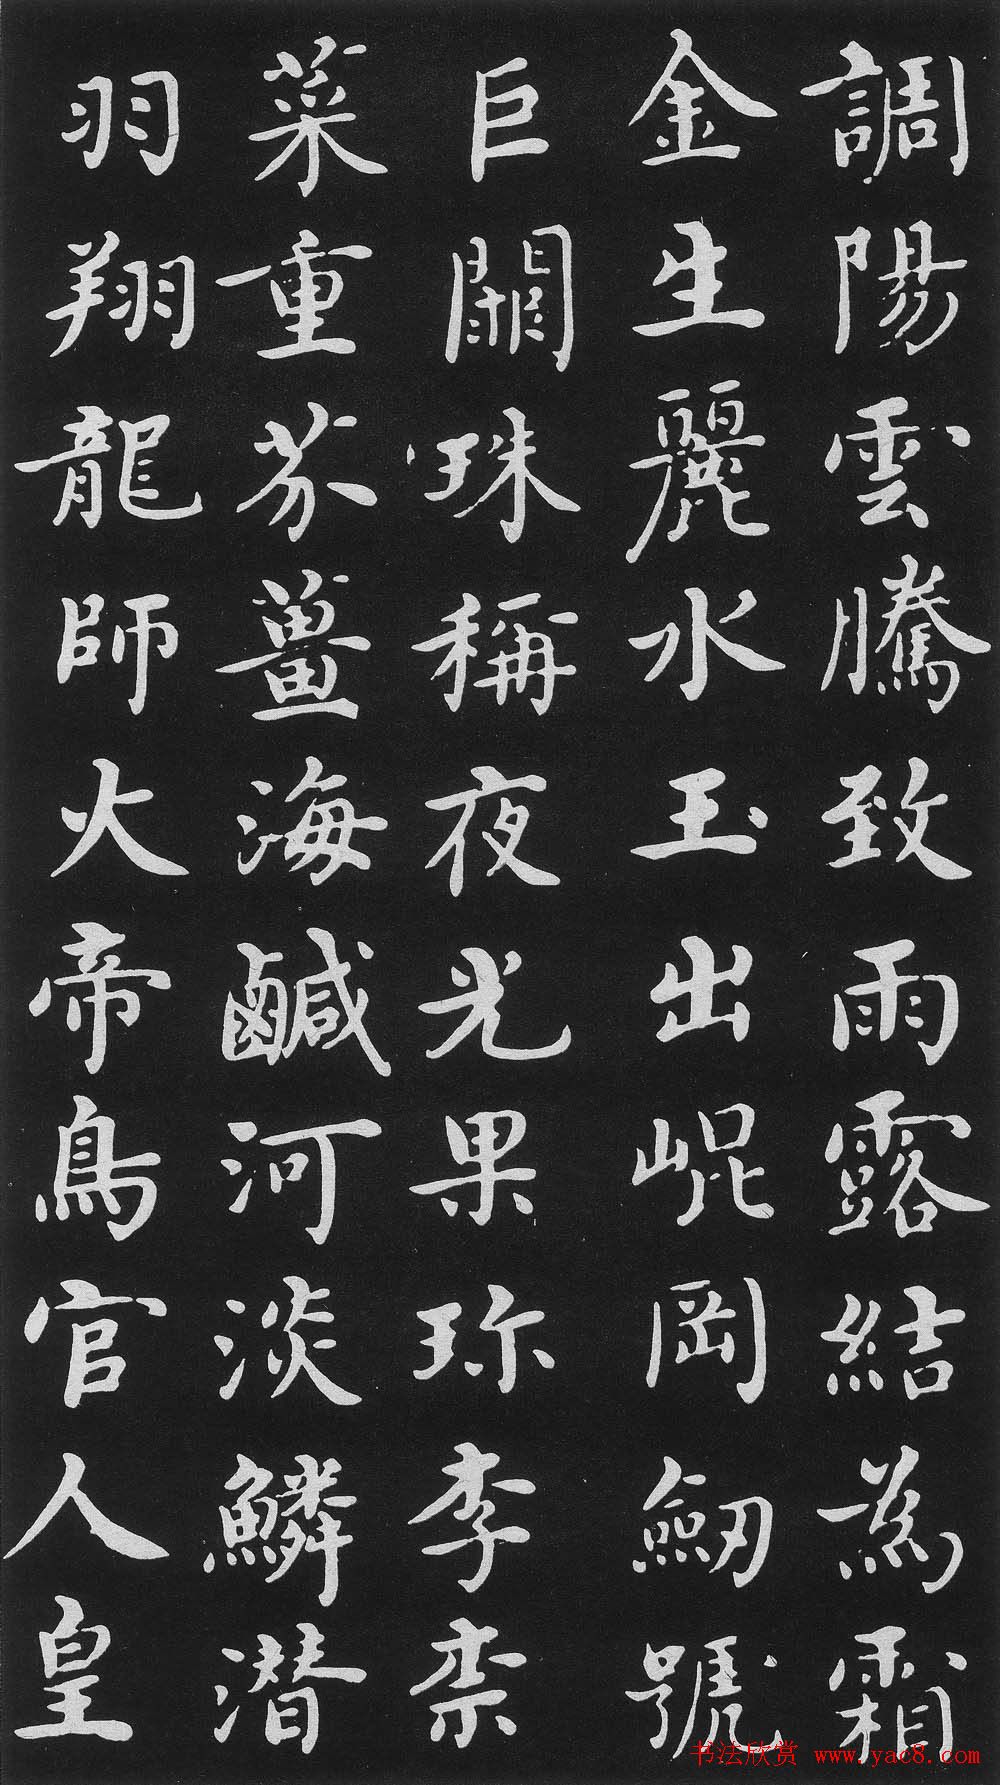 調陽雲騰致雨露結為霜
金生麗水玉出崐岡劒號
巨闕珠稱夜光果珎李柰
菜重芥薑海鹹河淡鱗潛
羽翔龍師火帝鳥官人皇
书法欣赏 www.yac8.com